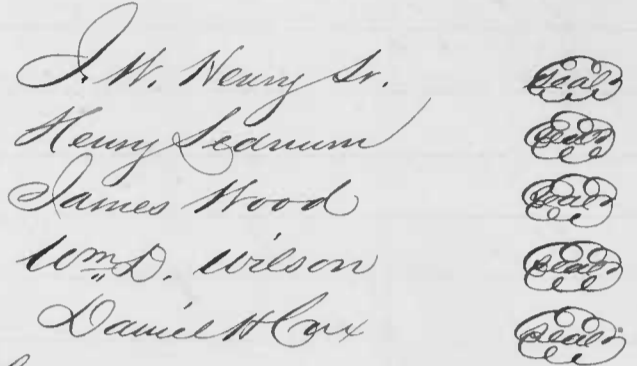 J. W. Henry Sr. Seal
Henry Lednum Seal
James Wood Seal
Wm. D. Wilson Seal
Daniel H Cox Seal